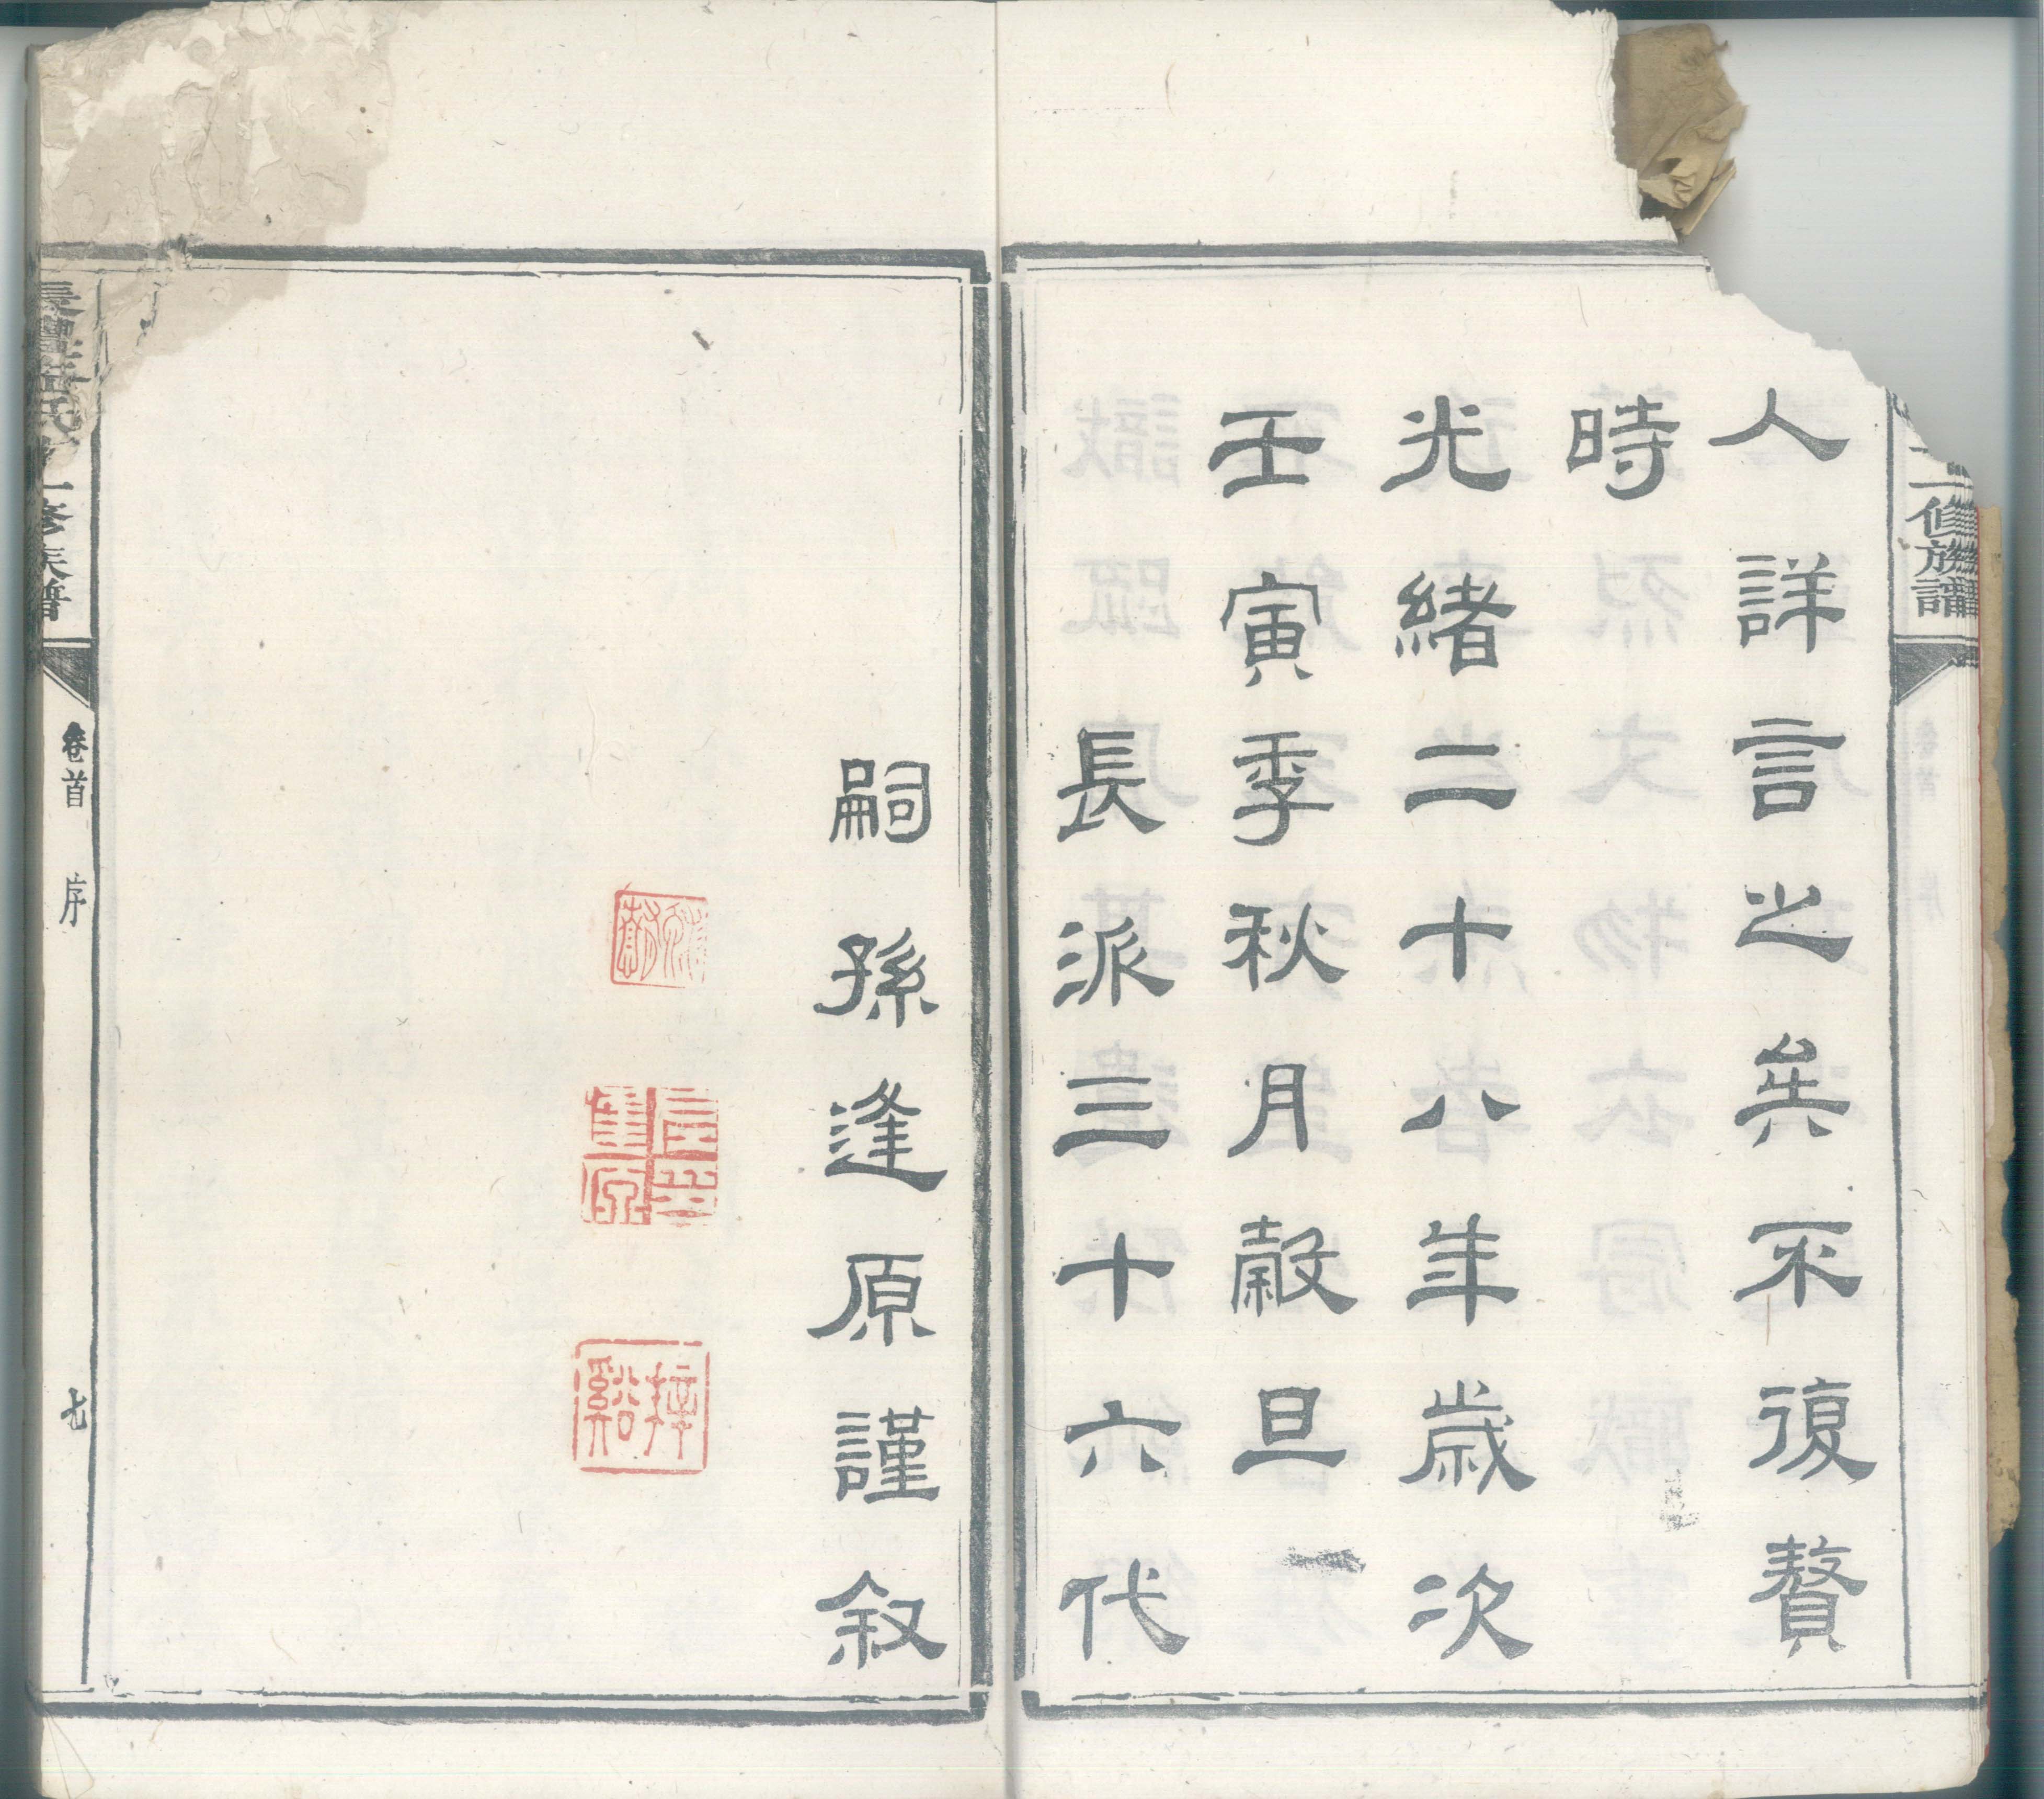 二修族譜
人詳言之矣不復贅
時
光緒二十八年歲次
壬寅季秋月穀旦
長派三十六代
嗣孫逢原謹敘
逢原
梓谿
氏
修族譜
卷首
序
七